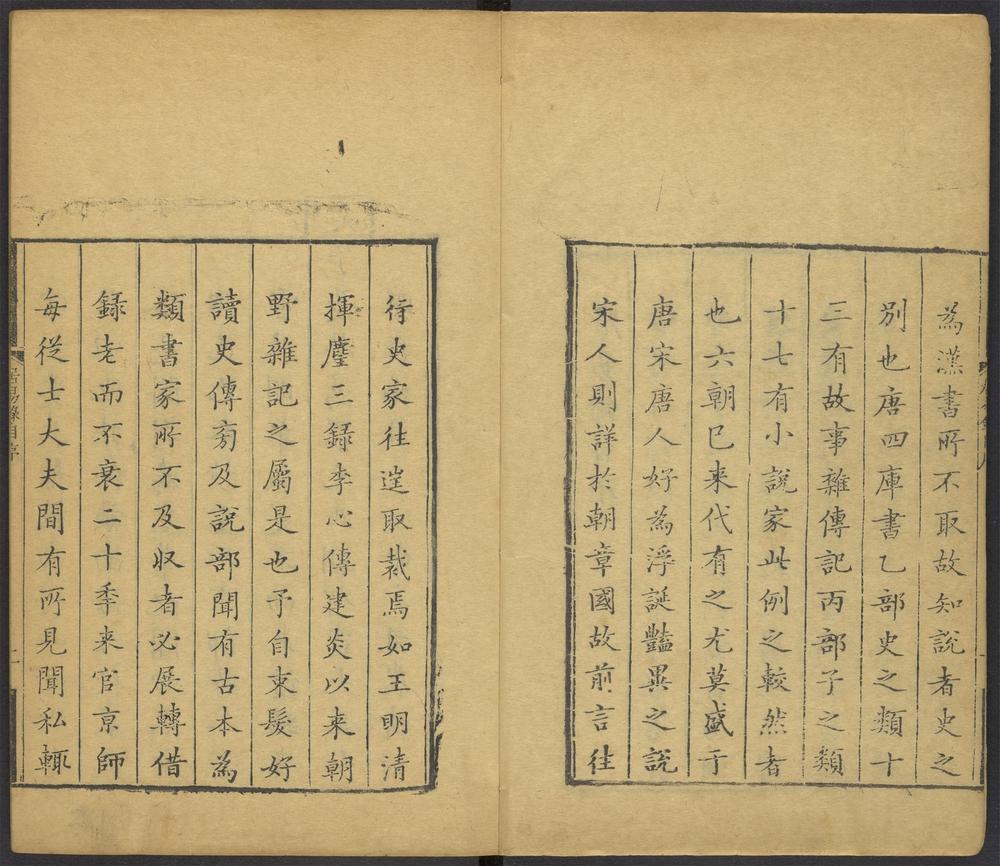 為漢書所不取故知說者史之
別也唐四庫書乙部史之類十
三有故事雜傳記丙部子之類
十七有小說家此例之較然者
也六朝已来代有之尤莫盛于
唐宋唐人好為浮誕豔異之說
宋人則詳於朝章國故前言往
行史家往往取裁焉如王明清
揮麈三錄李心傳建炎以来朝
野雜記之屬是也予自束髮好
讀史傳旁及說部聞有古本為
類書家所不及収者必展轉借
録老而不衰二十季来官京師
每從士大夫間有所見聞私輒
居易錄自序